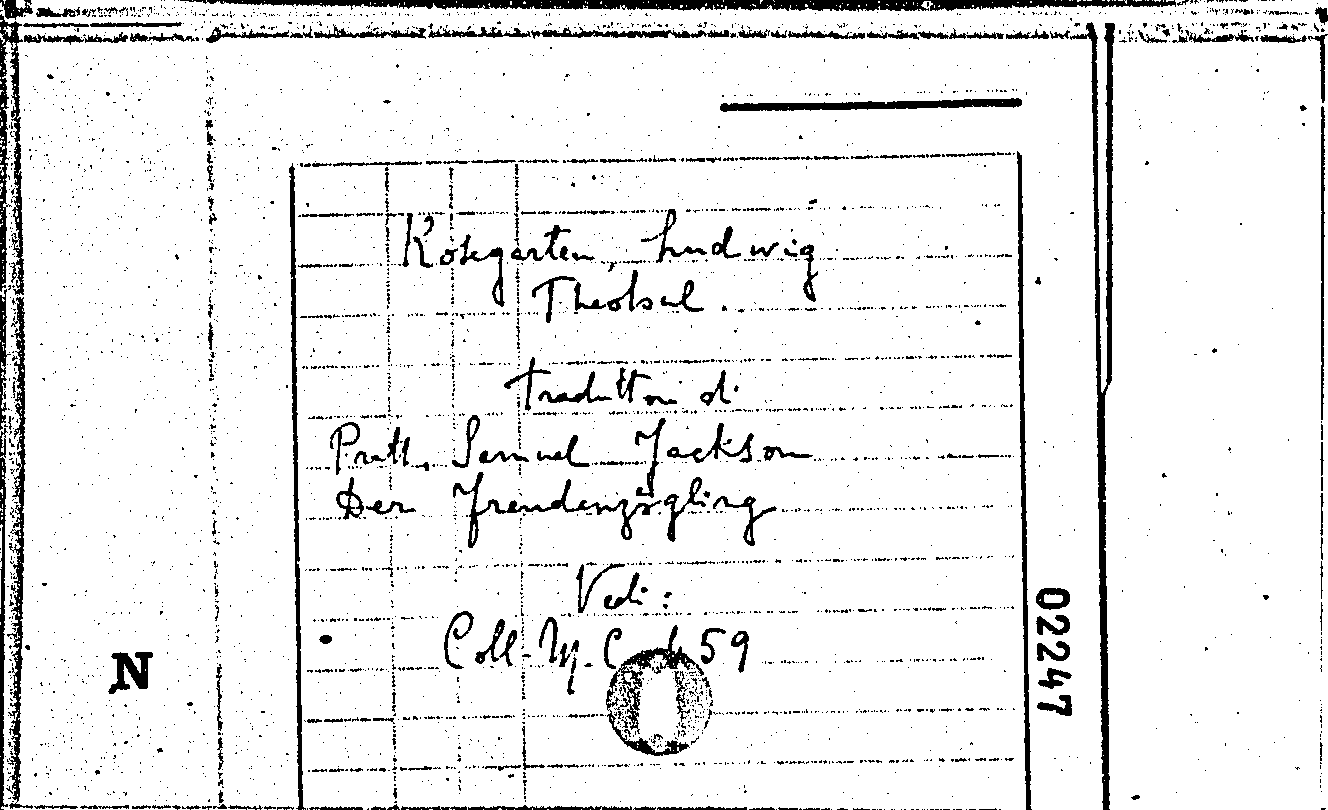 Kosegarten, Ludwig
Theobul.
Traduttore di
Pratt, Samuel Jackson
Der Freudenzögling
Vedi:
Coll. M. 59
N
02247